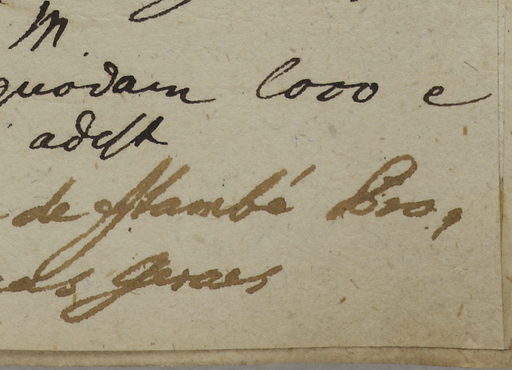 M.
quodam loco e
adest
de Itambé Pro,
as Geraes